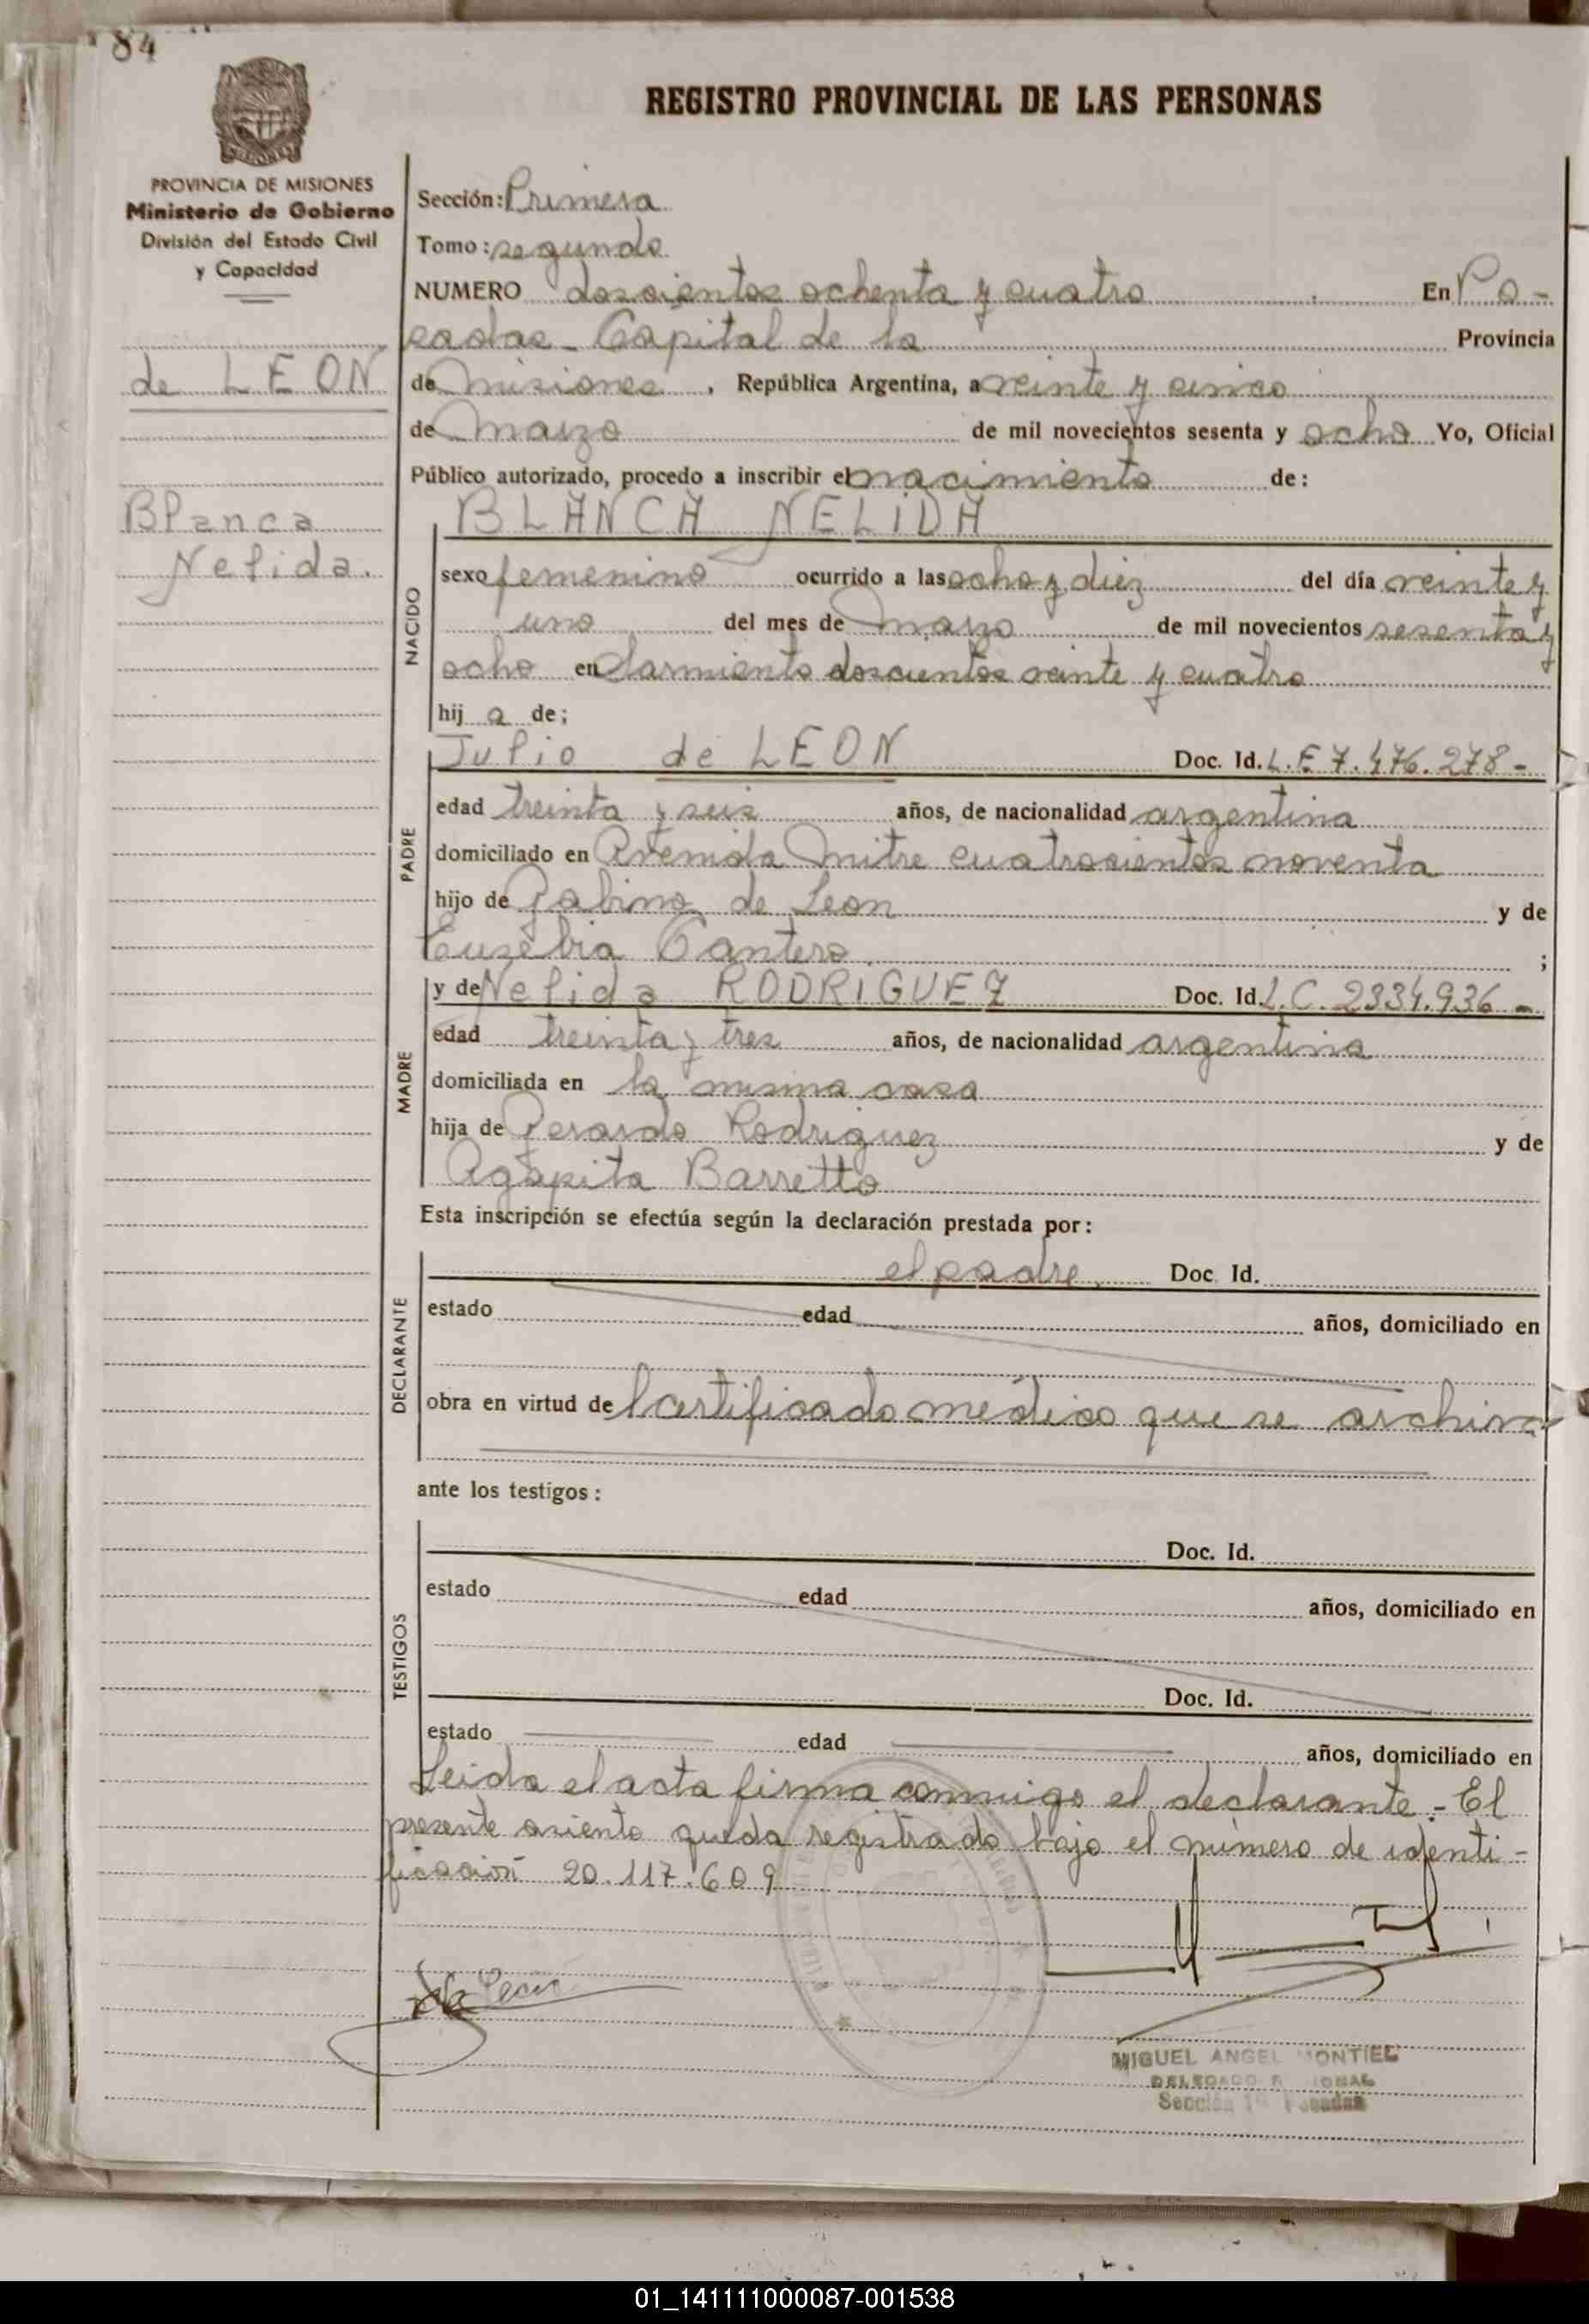 84
REGISTRO PROVINCIAL DE LAS PERSONAS
PROVINCIA DE MISIONES
Ministerio de Gobierno
División del Estado Civil
y Capacidad
de LEON
Blanca
Nelida.
Sección: Primera
Tomo: segundo
NUMERO doscientos ochenta y cuatro En Po-
sadas - Capital de la Provincia
de Misiones, República Argentina, a veinte y cinco
de Marzo de mil novecientos sesenta y ocho Yo, Oficial
Público autorizado, procedo a inscribir el nacimiento de:
BLANCA NELIDA
NACIDO
sexo femenino ocurrido a las ocho y diez del día veinte y
uno del mes de Marzo de mil novecientos sesenta y
ocho en Sarmiento doscientos veinte y cuatro
hij a de;
PADRE
Julio de LEON Doc. Id. L.E 7.476.278-
edad treinta y seis años, de nacionalidad argentina
domiciliado en Avenida Mitre cuatrocientos noventa
hijo de Gabino de Leon y de
Eusebia Cantero ;
MADRE
y de Nelida RODRIGUEZ Doc. Id. L.C. 2334.936-
edad treinta y tres años, de nacionalidad argentina
domiciliada en la misma casa
hija de Gerardo Rodriguez y de
Agapita Barretto
Esta inscripción se efectúa según la declaración prestada por:
DECLARANTE
el padre. Doc. Id.
estado edad años, domiciliado en
obra en virtud de l certificado médico que se archiva
ante los testigos:
TESTIGOS
Doc. Id.
estado edad años, domiciliado en
Doc. Id.
estado edad años, domiciliado en
Leida el acta firma conmigo el declarante.- El
presente asiento queda registrado bajo el número de identi-
ficación 20.117.609
de Leon
MIGUEL ANGEL MONTIEL
DELEGADO
Sección Posadas
01_141111000087-001538